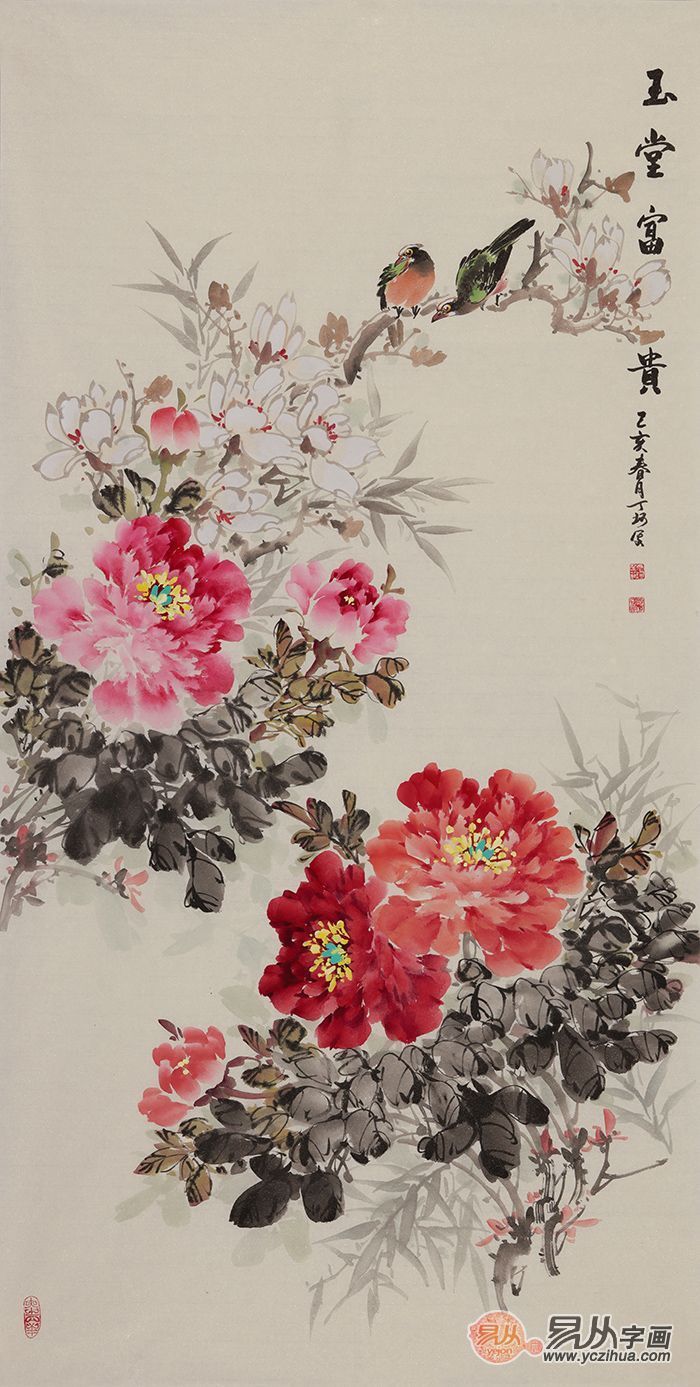 玉堂富貴
己亥春月丁
易从
yejon
易从字画
www.yczihua.com